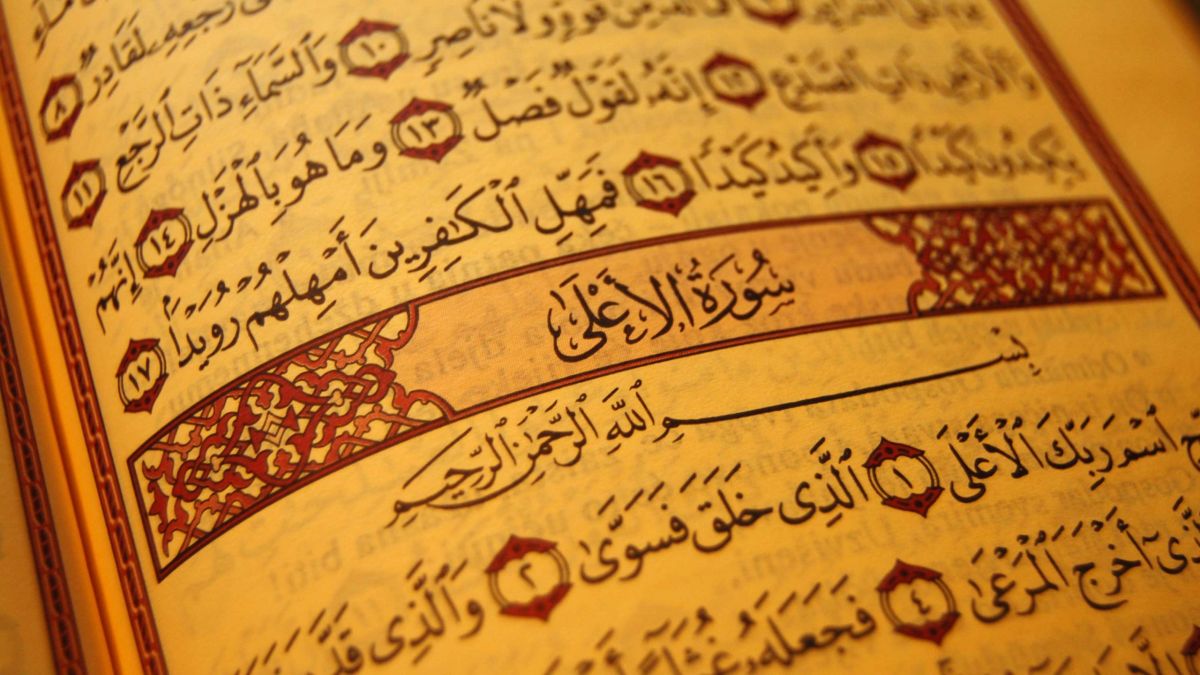 رَجْعِهِۦ لَقَادِرٌ ٨
ٱلسَّرَآئِرُ ٩ فَمَا لَهُۥ مِن قُوَّةٍ وَلَا نَاصِرٍ ١٠ وَٱلسَّمَآءِ ذَاتِ ٱلرَّجْعِ ١١
وَٱلْأَرْضِ ذَاتِ ٱلصَّدْعِ ١٢ إِنَّهُۥ لَقَوْلٌ فَصْلٌ ١٣ وَمَا هُوَ بِٱلْهَزْلِ ١٤ إِنَّهُمْ
يَكِيدُونَ كَيْدًا ١٥ وَأَكِيدُ كَيْدًا ١٦ فَمَهِّلِ ٱلْكَٰفِرِينَ أَمْهِلْهُمْ رُوَيْدًۢا ١٧
سُورَةُ الأَعْلَىٰ
بِسْمِ ٱللَّهِ ٱلرَّحْمَٰنِ ٱلرَّحِيمِ
ٱسْمَ رَبِّكَ ٱلْأَعْلَى ١ ٱلَّذِى خَلَقَ فَسَوَّىٰ ٢ وَٱلَّذِى قَدَّرَ
أَخْرَجَ ٱلْمَرْعَىٰ ٤ فَجَعَلَهُۥ غُثَآءً